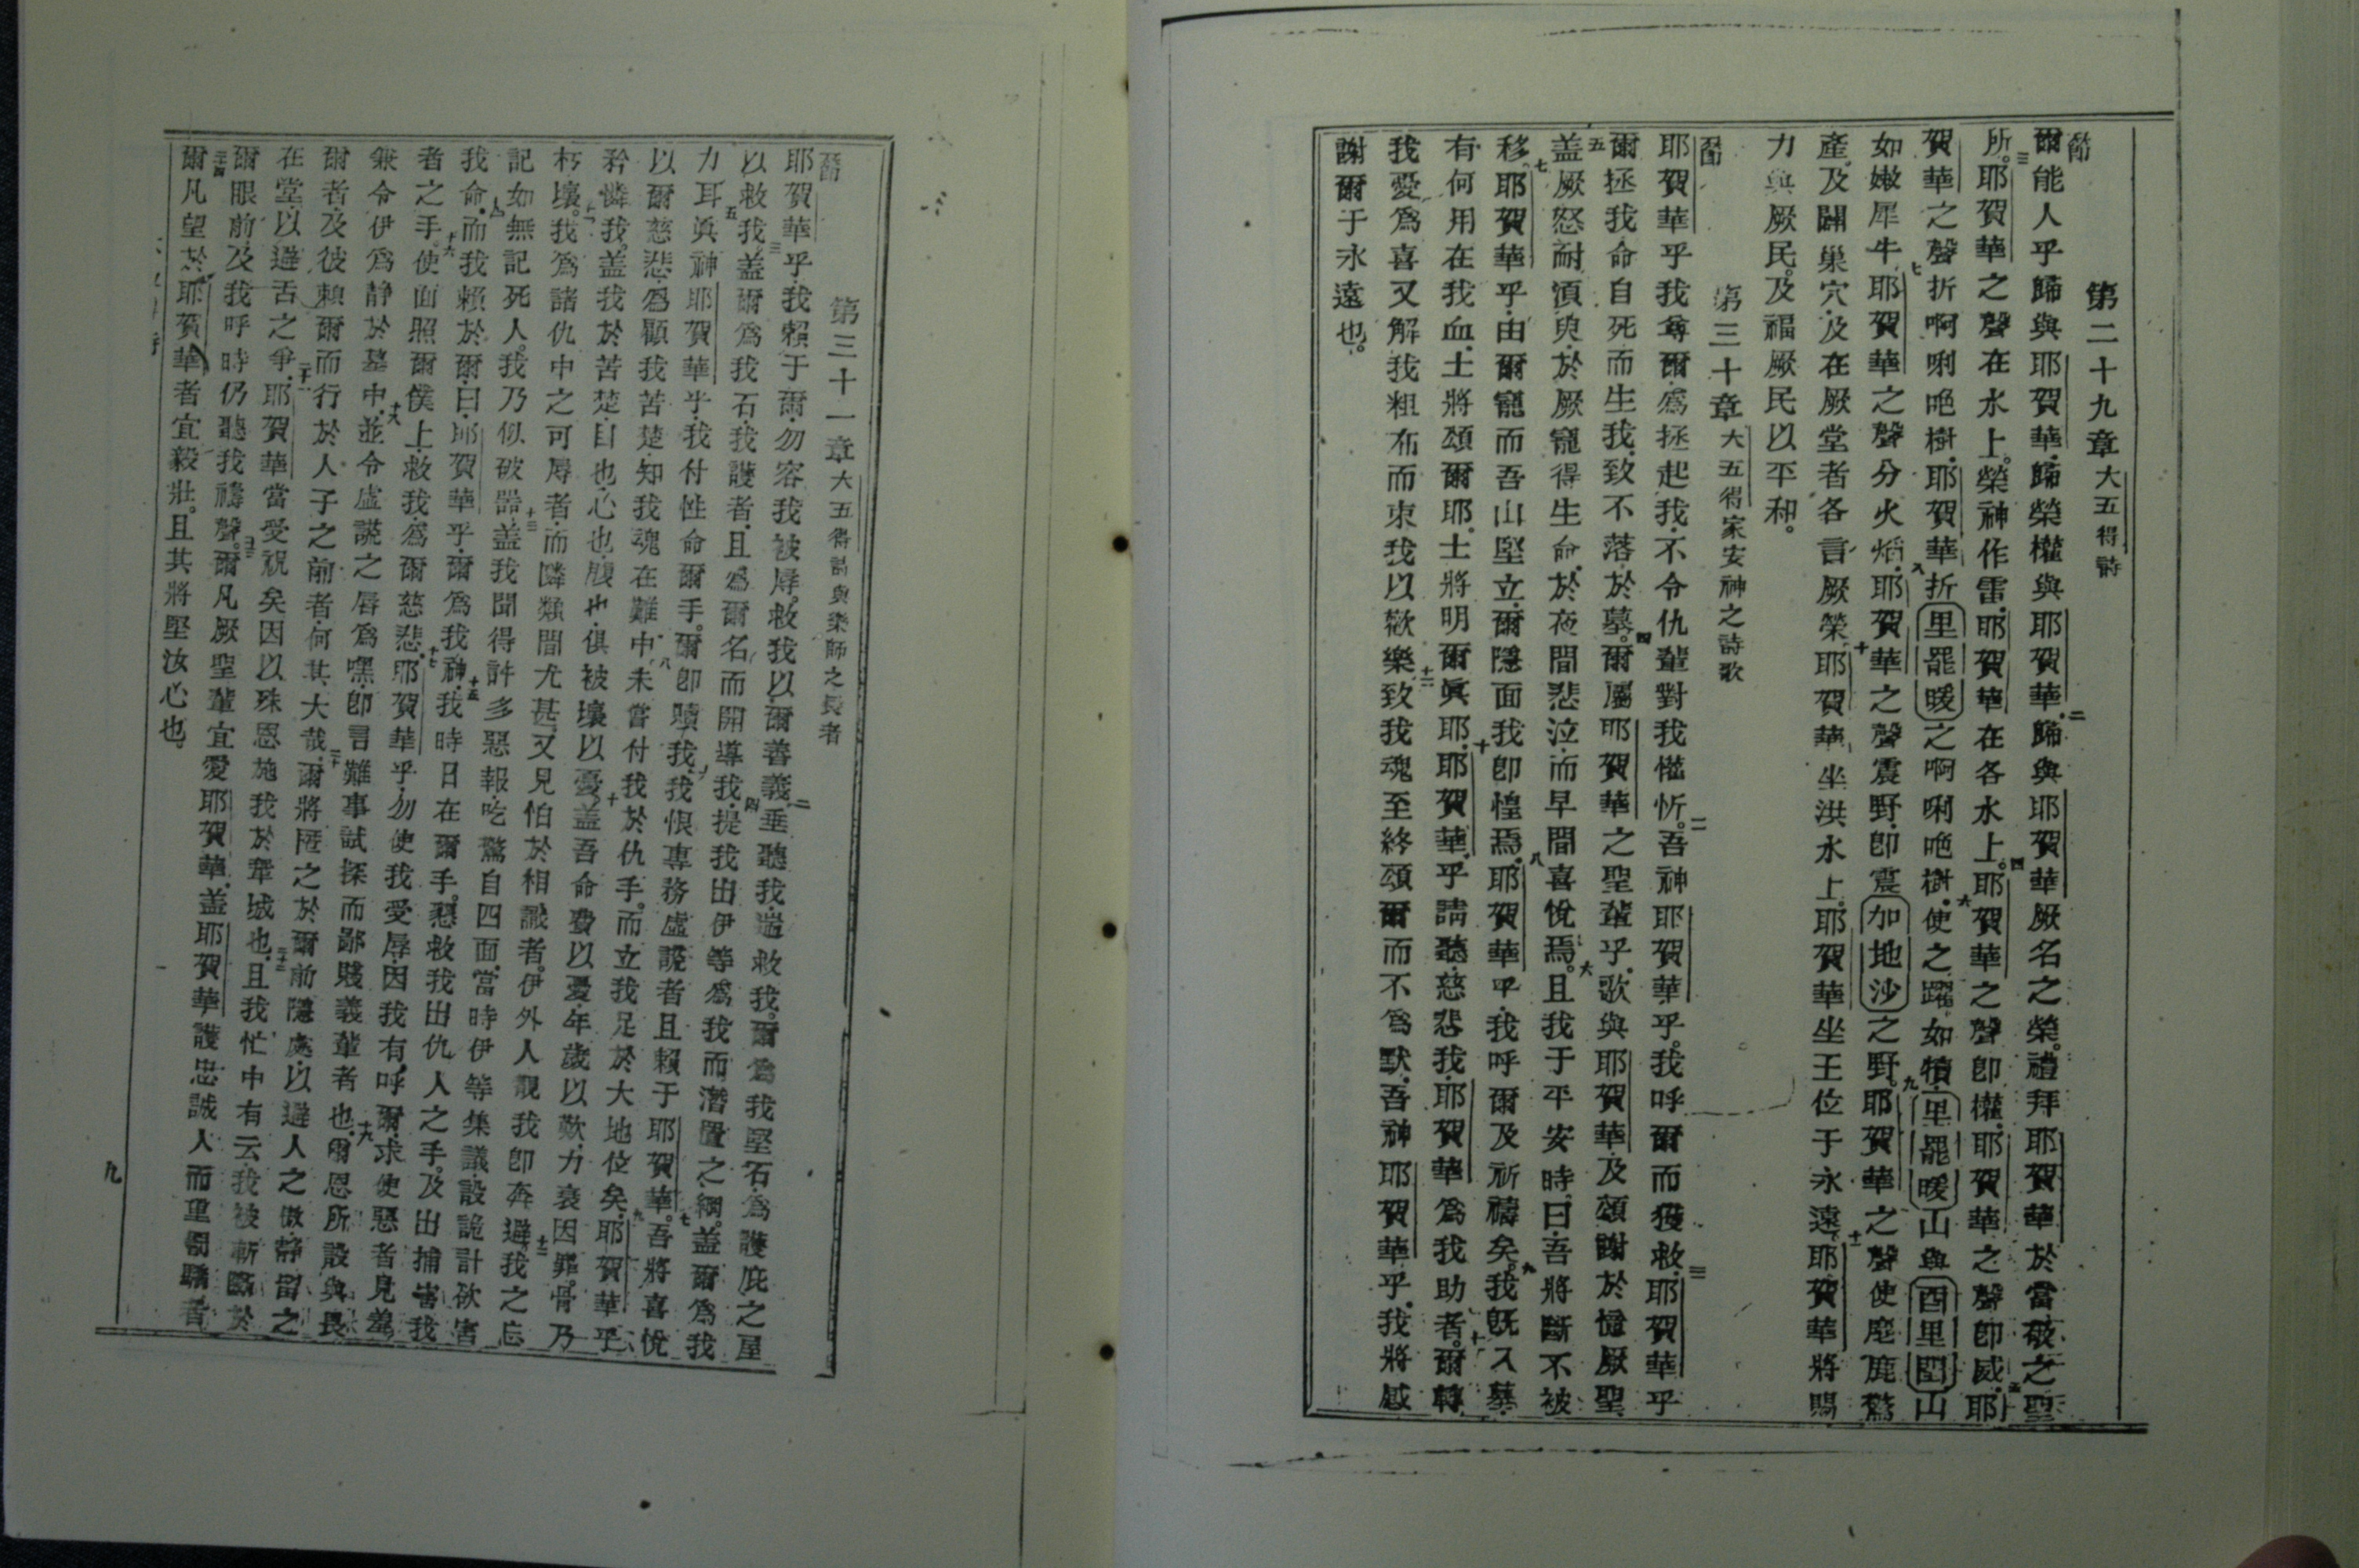 第二十九章 大五得詩
節
爾能人乎歸與耶賀華歸榮權與耶賀華二歸與耶賀華厥名之榮禮拜耶賀華於當破之聖
所三耶賀華之聲在水上榮神作雷耶賀華在各水上四耶賀華之聲即權耶賀華之聲即威五耶
賀華之聲折啊唎吔樹耶賀華折里罷暖之啊唎吔樹六使之躍如犢里罷暖山與酉里𨳯山
如嫩犀牛七耶賀華之聲分火焰八耶賀華之聲震野即震加地沙之野九耶賀華之聲使麀鹿驚
產及闢巢穴及在厥堂者各言厥榮十耶賀華坐洪水上耶賀華坐王位于永遠十一耶賀華將賜
力與厥民及福厥民以平和
第三十章 大五得家安神之詩歌
節
耶賀華乎我尊爾為拯起我不令仇輩對我懽忻二吾神耶賀華乎我呼爾而獲救三耶賀華乎
爾拯我命自死而生我致不落於墓四爾屬耶賀華之聖輩乎歌與耶賀華及頌謝於憶厥聖
五蓋厥怒耐湏臾於厥寵得生命於夜間悲泣而早間喜悅焉六且我于平安時曰吾將斷不被
移七耶賀華乎由爾寵而吾山堅立爾隱面我即惶焉八耶賀華乎我呼爾及祈禱矣九我旣入墓
有何用在我血土將頌爾耶土將明爾眞耶十耶賀華乎請聽慈悲我耶賀華為我助者十一爾轉
我憂為喜又解我粗布而束我以歡樂十二致我魂至終頌爾而不為默吾神耶賀華乎我將感
謝爾于永遠也
第三十一章 大五得詩與樂師之長者
節
耶賀華乎我賴于爾勿容我被辱救我以爾善義二垂聽我遄救我爾為我堅石為護庇之屋
以救我三蓋爾為我石我護者且為爾名而開導我四提我出伊等為我而潛置之網蓋爾為我
力耳五眞神耶賀華乎我付性命爾手爾即贖我六我恨專務虛謊者且賴于耶賀華七吾將喜悅
以爾慈悲為顧我苦楚知我魂在難中八未嘗付我於仇手而立我足於大地位矣九耶賀華乎
矜憐我蓋我於苦楚目也心也腹也俱被壞以憂十蓋吾命費以憂年歲以歎力衰因罪骨乃
朽壞十一我為諸仇中之可辱者而隣類間尤甚又見怕於相識者伊外人覩我即奔避十二我之忘
記如無記死人我乃似破器十三蓋我聞得許多惡報吃驚自四面當時伊等集議設詭計欲害
我命十四而我賴於爾曰耶賀華乎爾為我神十五我時日在爾手懇救我出仇人之手及出捕害我
者之手十六使面照爾僕上救我為爾慈悲十七耶賀華乎勿使我受辱因我有呼爾求使惡者見羞
兼令伊為静於墓中十八並令虛謊之唇為嘿即言難事試探而鄙賤義輩者也十九爾恩所設與畏
爾者及彼賴爾而行於人子之前者何其大哉二十爾將匿之於爾前隱處以避人之傲静留之
在堂以避舌之爭二十一耶賀華當受祝矣因以殊恩施我於鞏城也二十二且我忙中有云我被斬斷於
爾眼前及我呼時仍聽我禱聲二十三爾凡厥聖輩宜愛耶賀華蓋耶賀華護忠誠人而重罰驕者
二十四爾凡望於耶賀華者宜毅壯且其將堅汝心也
九